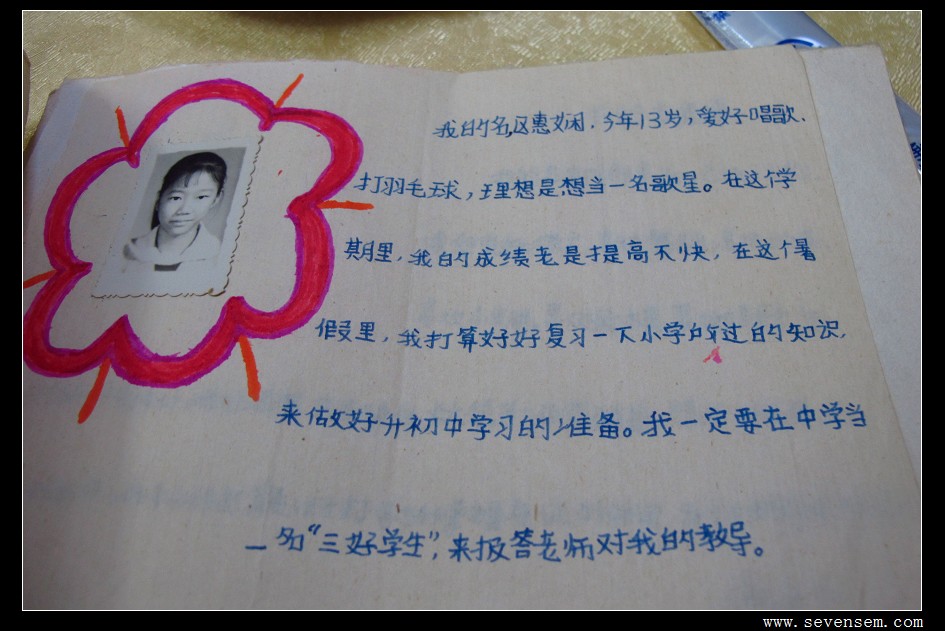 我的名区惠娴.今年13岁,爱好唱歌.
打羽毛球,理想是想当一名歌星。在这个学
期里,我的成绩老是提高不快,在这个暑
假里,我打算好好复习一下小学过的知识,
来做好升初中学习的准备。我一定要在中学当
一名“三好学生”,来报答老师对我的教导。
www.sevensem.com